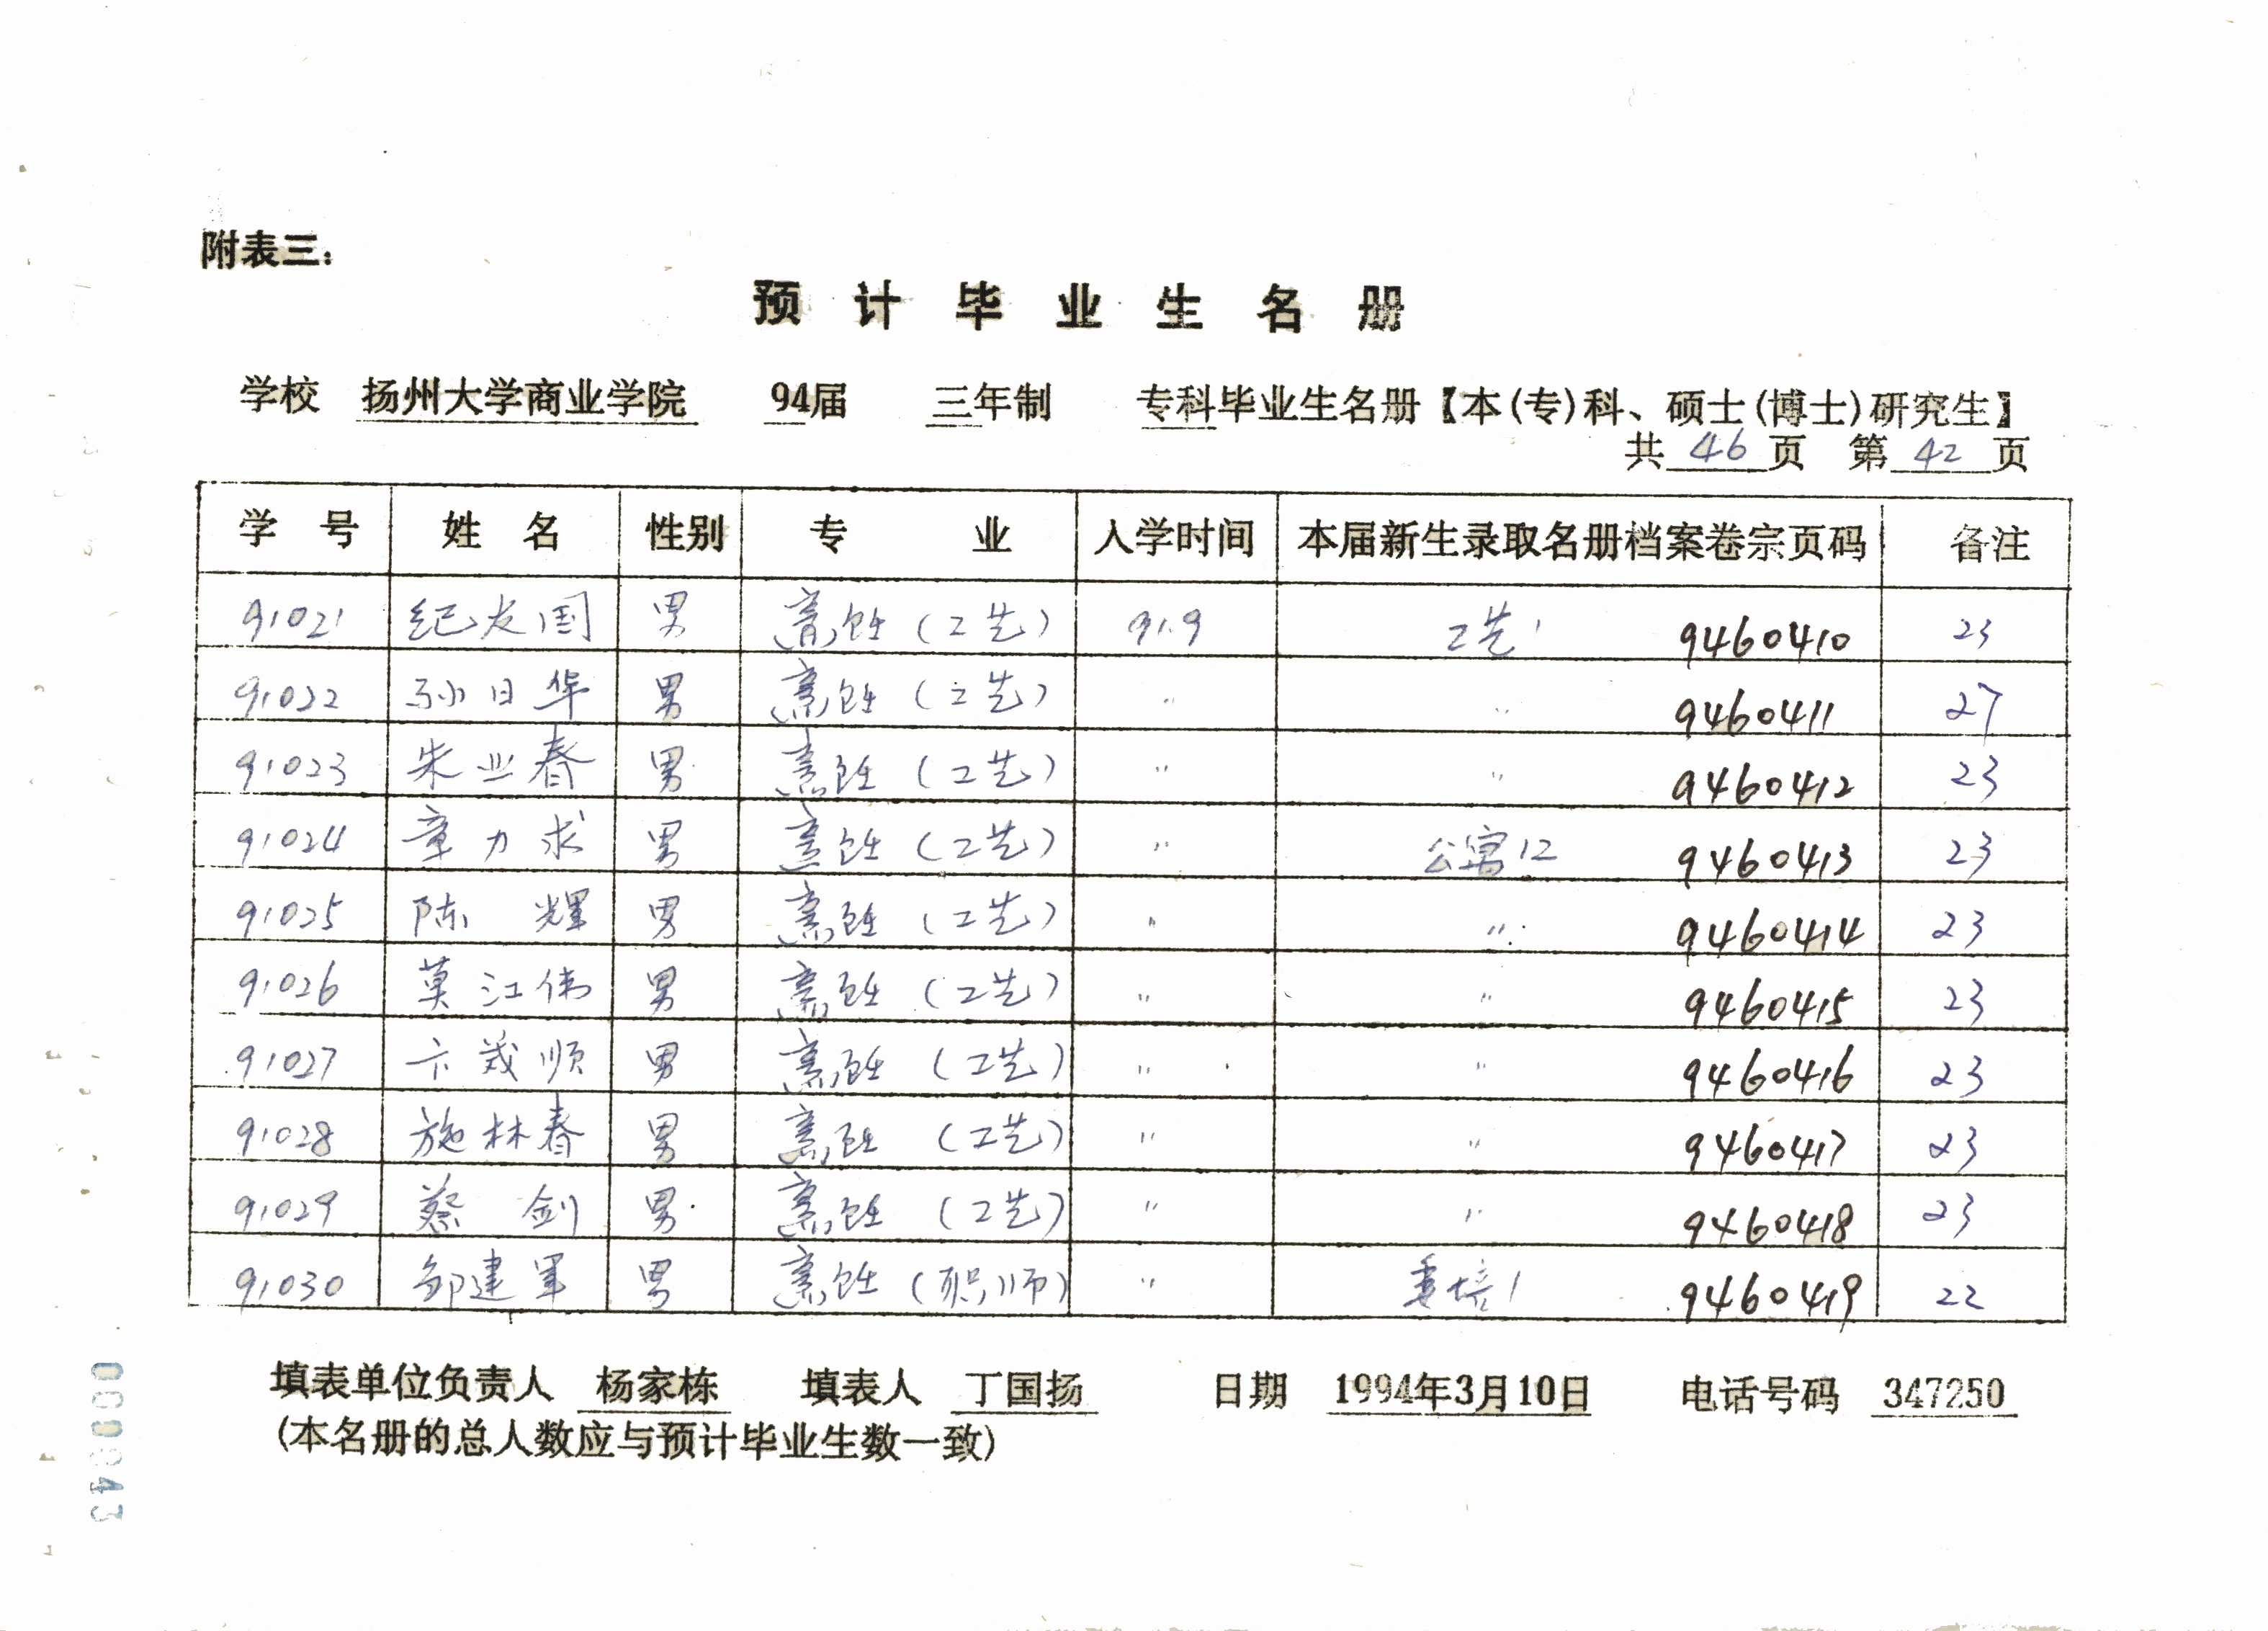 附表三：
预计毕业生名册
学校 扬州大学商业学院 94届 三年制 专科毕业生名册【本(专)科、硕士(博士)研究生】
共 46 页 第 42 页
学号 姓名 性别 专业 入学时间 本届新生录取名册档案卷宗页码 备注
91021 纪友国 男 烹饪（工艺） 91.9 工艺1 9460410 23
91022 孙日华 男 烹饪（工艺） 〃 〃 9460411 27
91023 朱业春 男 烹饪（工艺） 〃 〃 9460412 23
91024 章力求 男 烹饪（工艺） 〃 公寓12 9460413 23
91025 陈辉 男 烹饪（工艺） 〃 〃 9460414 23
91026 莫江伟 男 烹饪（工艺） 〃 〃 9460415 23
91027 卞 顺 男 烹饪（工艺） 〃 〃 9460416 23
91028 施林春 男 烹饪（工艺） 〃 〃 9460417 23
91029 蔡剑 男 烹饪（工艺） 〃 〃 9460418 23
91030 邹建军 男 烹饪（职师） 〃 委培1 9460419 22
填表单位负责人 杨家栋 填表人 丁国扬 日期 1994年3月10日 电话号码 347250
(本名册的总人数应与预计毕业生数一致)
000043